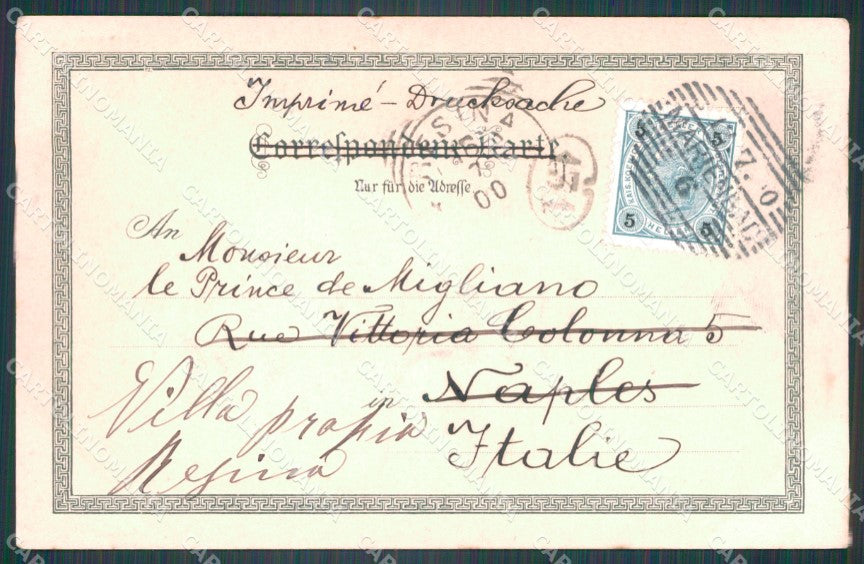 Imprimé - Drucksache
Correspondenz-Karte
Nur für die Adresse
RESINA
7
00
5 5
5 5
6 7 0
An Monsieur
le Prince de Migliano
Rue Vittoria Colonna 5
in Naples
Villa propria
Resina
Italie
CARTOLINOMANIA